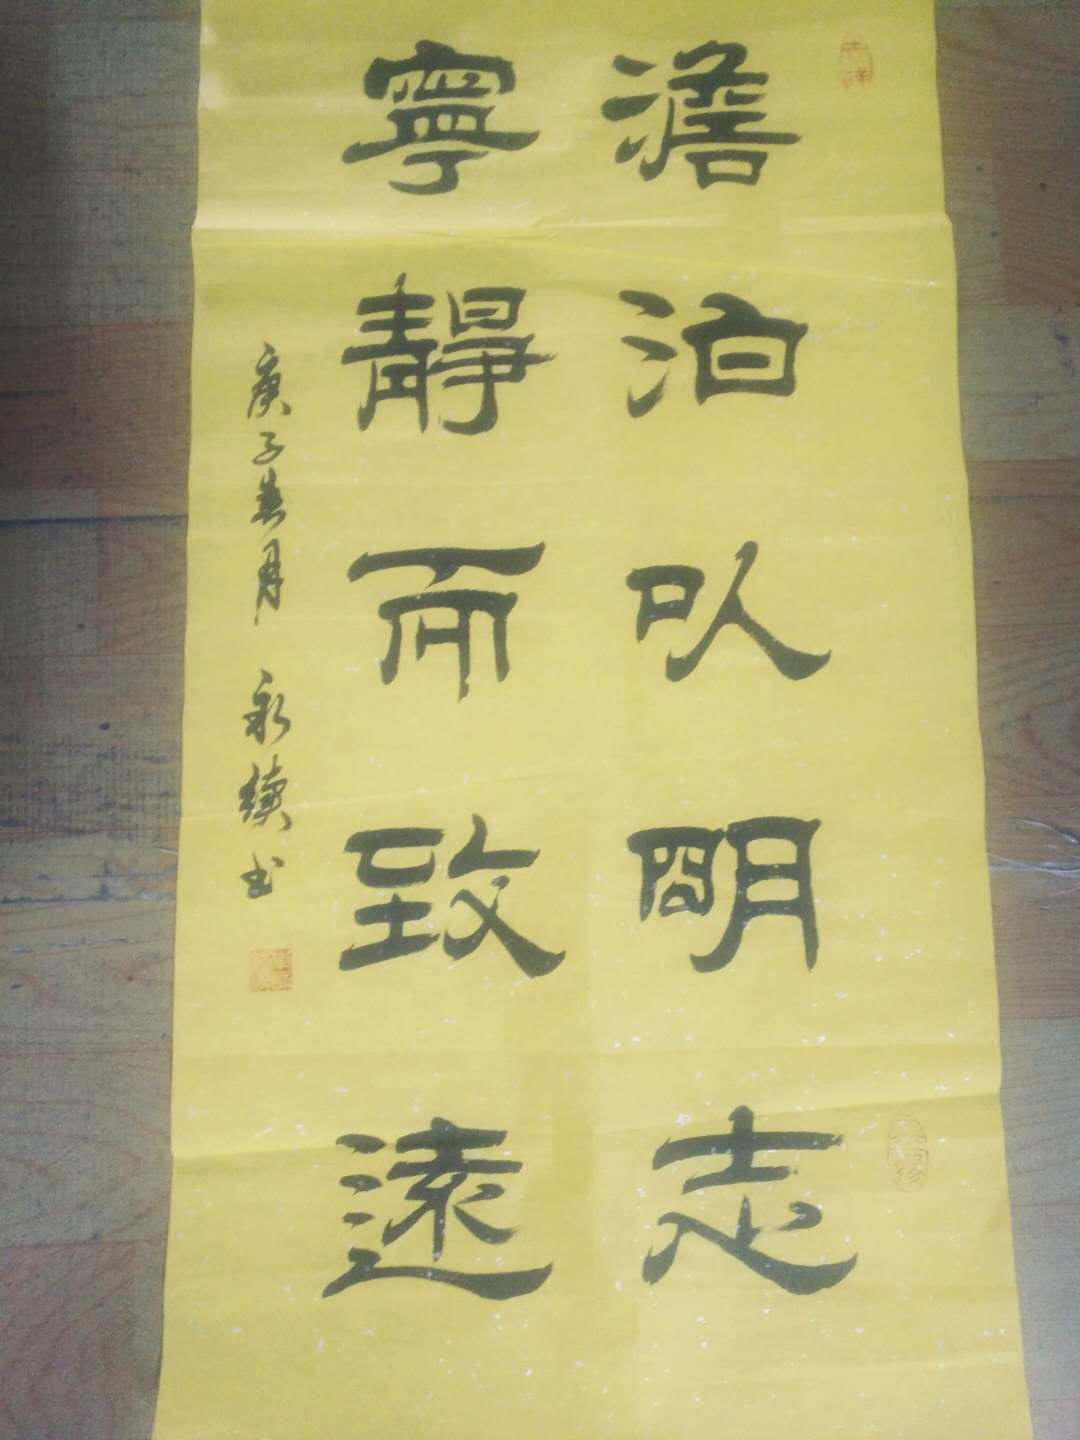 澹泊以明志
寧靜而致遠
庚子燕月 永續书